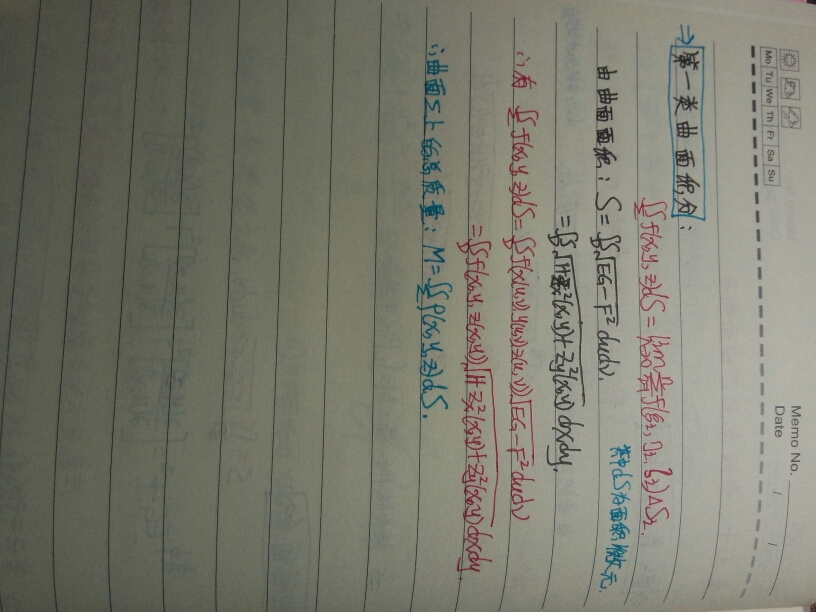 Memo No.
Mo Tu We Th Fr Sa Su
Date / /
⇒ 第一类曲面积分:
∬_Σ f(x,y,z)dS = lim_{λ→0} Σ f(ξ_i, η_i, ζ_i)ΔS_i.
其中dS为面积微元.
由曲面面积: S = ∬_D √(EG-F²) dudv.
= ∬_D √(1+z_x²(x,y)+z_y²(x,y)) dxdy.
∴有 ∬_Σ f(x,y,z)dS = ∬_D f(x(u,v),y(u,v),z(u,v))√(EG-F²) dudv
= ∬_D f(x,y,z(x,y))√(1+z_x²(x,y)+z_y²(x,y)) dxdy.
∴曲面Σ上的总质量: M = ∬_Σ ρ(x,y,z)dS.